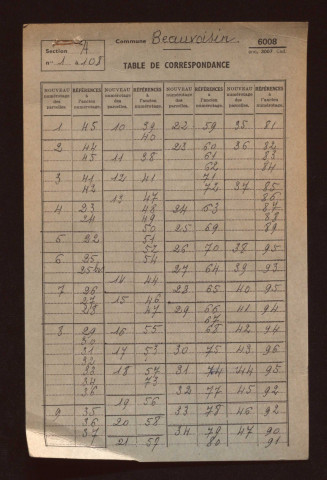 Section A
n° 1 à 108
Commune Beauvoisin
6008
TABLE DE CORRESPONDANCE
NOUVEAU numérotage des parcelles. RÉFÉRENCES à l'ancien numérotage. NOUVEAU numérotage des parcelles. RÉFÉRENCES à l'ancien numérotage. NOUVEAU numérotage des parcelles. RÉFÉRENCES à l'ancien numérotage. NOUVEAU numérotage des parcelles. RÉFÉRENCES à l'ancien numérotage.
1 45 10 39 22 59 35 81
40
2 44 23 60 36 82
45 11 38 61 83
62 84
3 41 12 41 71
42 72 37 85
13 47 86
4 23 48 24 63 87
24 49 88
50 25 69 89
5 22 51
52 26 70 38 95
6 25 54
27 64 39 93
14 44
7 26 28 65 40 95
27 15 46
28 47 29 66 41 94
67
8 29 16 55 68 42 94
30
31 17 53 30 75 43 96
32
33 18 57 31 74 44 95
34 73
36 32 77 45 92
19 56
9 35 33 78 46 92
36 20 58
37 34 79 47 90
21 59 80 91